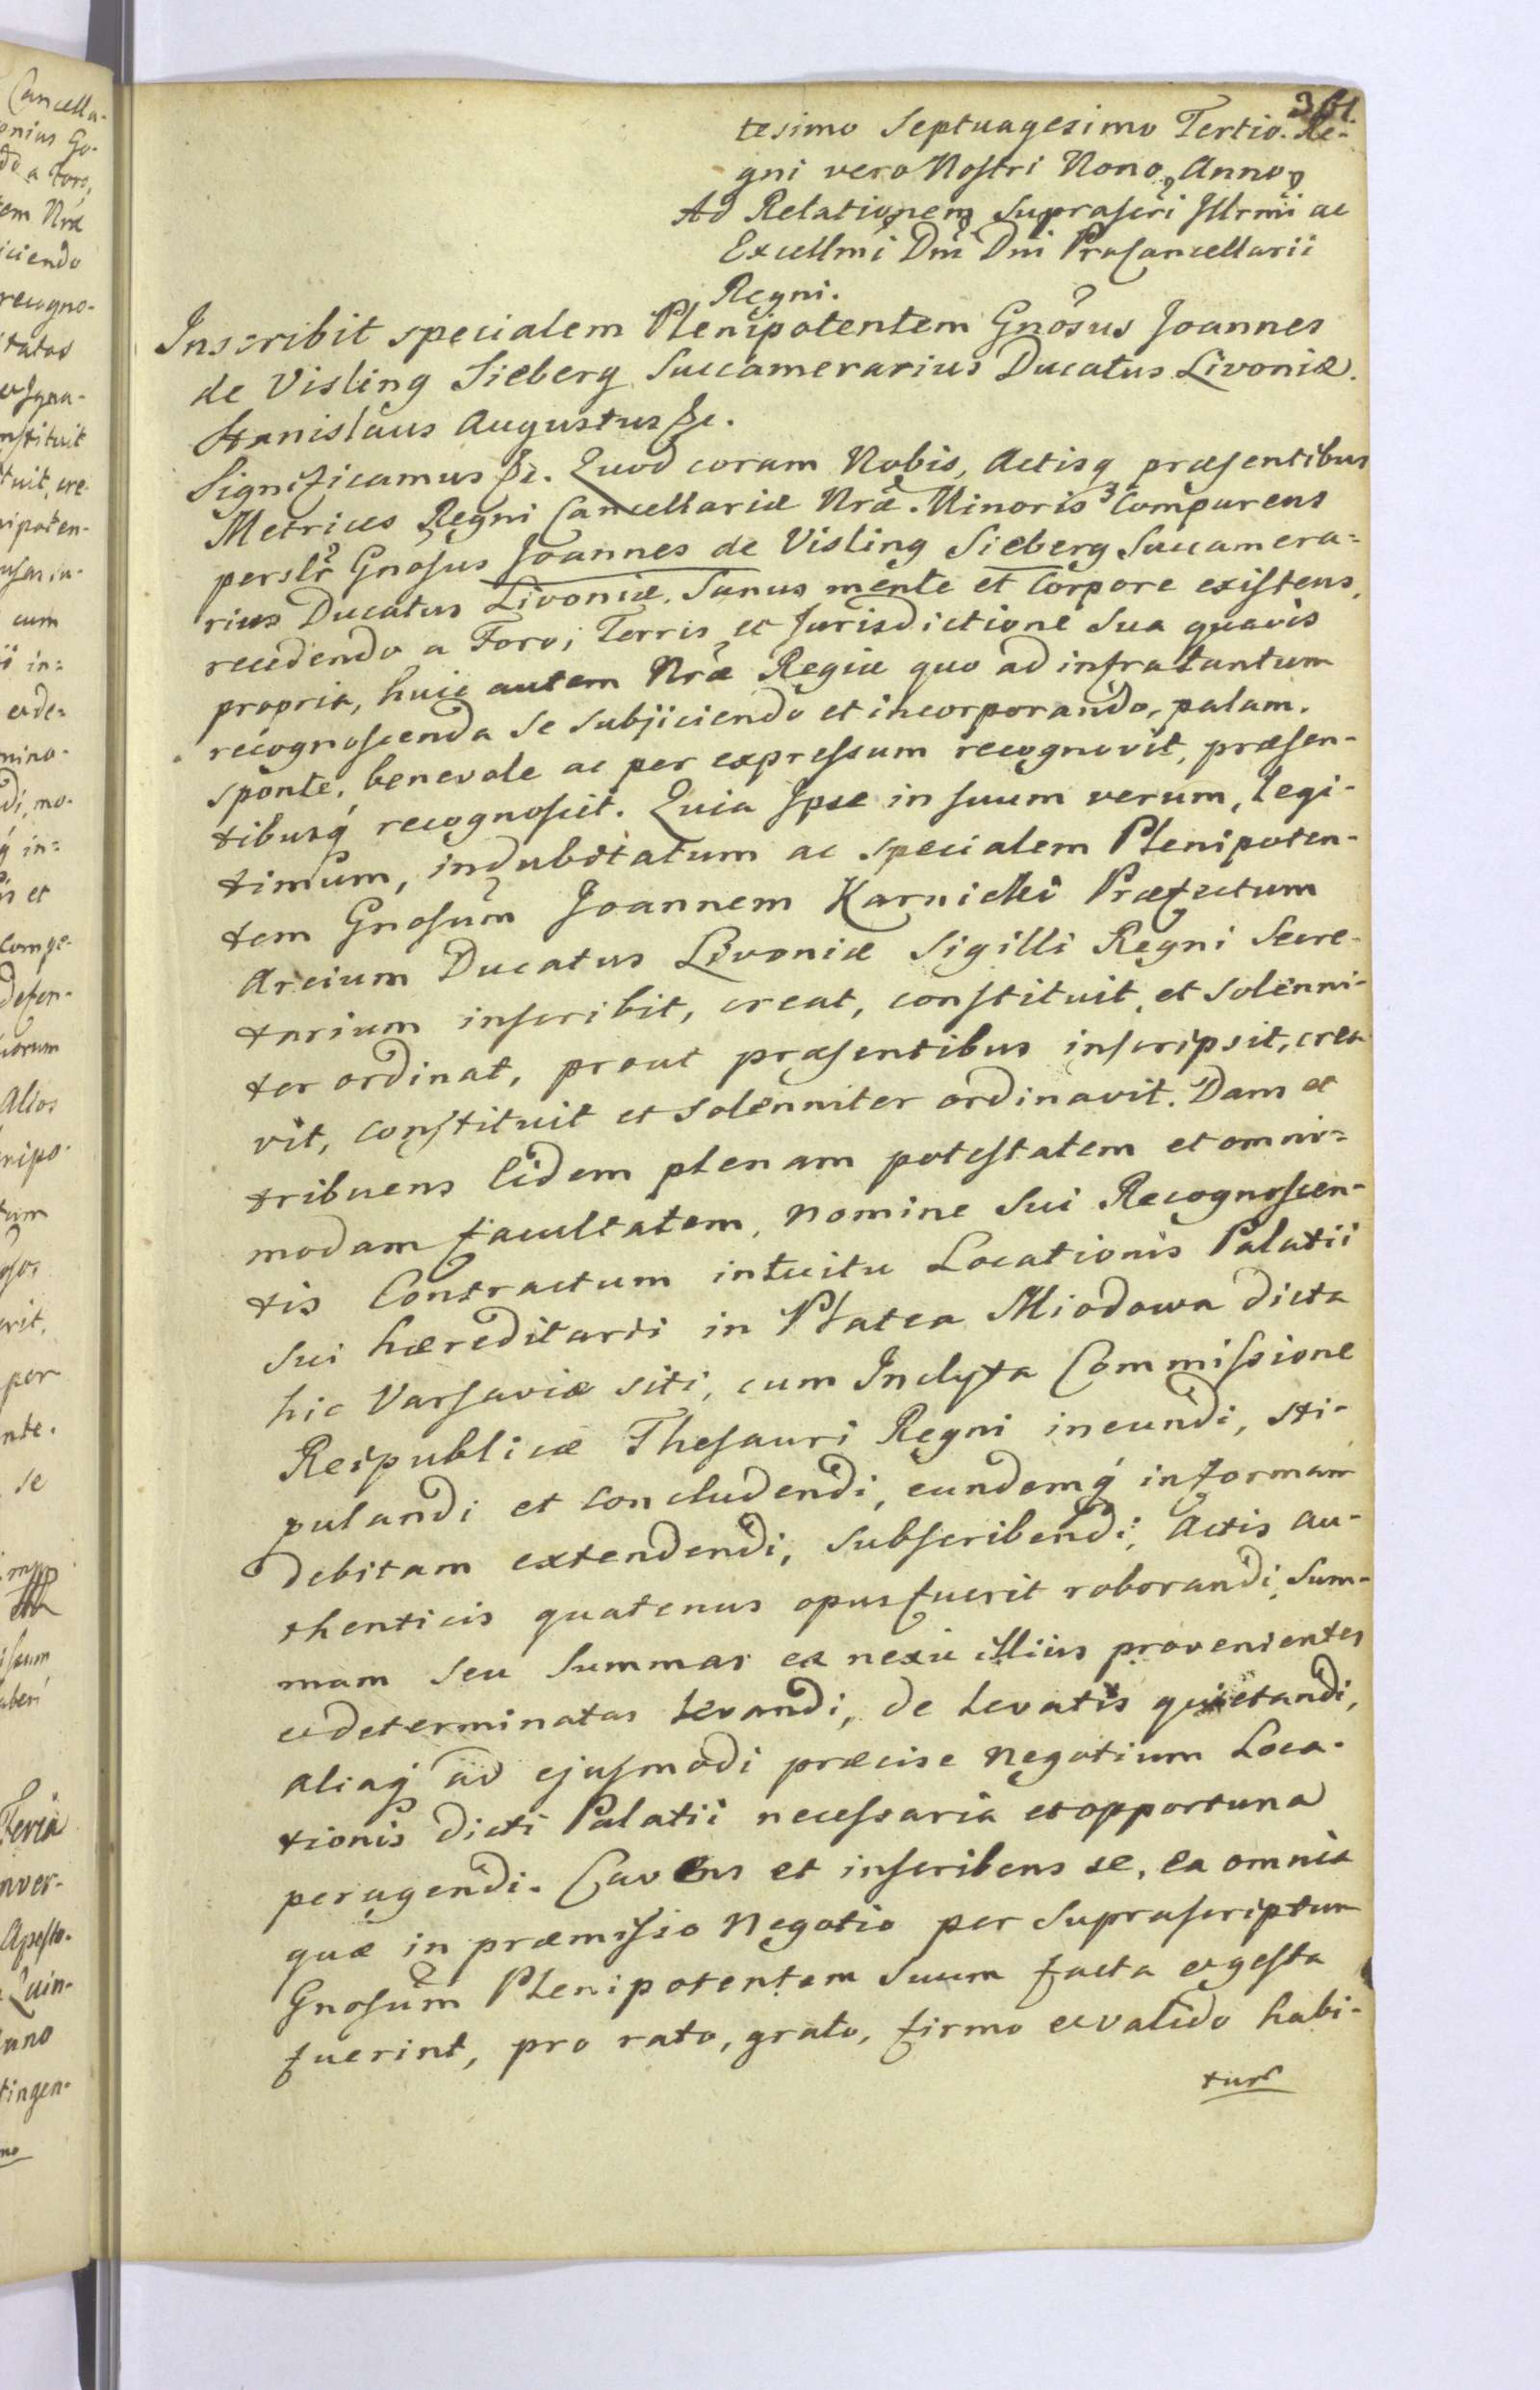 361.
tesimo Septuagesimo Tertio. Re-
gni vero Nostri Nono Anno.
Ad Relationem Suprascri Jllrmi ac
Excellmi Dni Dni ProCancellarii
Regni.
Inscribit specialem Plenipotentem Gnosus Joannes
de Visling Sieberg Succamerarius Ducatus Livoniæ.
Stanislaus Augustus &c.
Significamus &c. Quod coram Nobis, Actisq præsentibus
Metrices Regni Cancellariæ Nræ. Minoris Comparens
perslr Gnosus Joannes de Visling Sieberg Succamera=
rius Ducatus Livoniæ. Sanus mente et Corpore existens,
recedendo a Foro, Terris et Jurisdictione Sua quavis
propria, huic autem Nræ Regiæ quo ad infra tantum
recognoscenda se subjiciendo et incorporando, palam.
sponte, benevole ac per expressum recognovit, præsen-
tibusq recognoscit. Quia Ipse in suum verum, legi-
timum, indubitatum ac specialem Plenipoten-
tem Gnosum Joannem Karnicki Præfectum
Arcium Ducatus Livoniæ Sigilli Regni Secre-
tarium inscribit, creat, constituit et solenni-
ter ordinat, prout præsentibus inscripsit, crea
vit, constituit et solenniter ordinavit. Dans et
tribuens Eidem plenam potestatem et omni=
modam facultatem, nomine Sui Recognoscen-
tis Contractum intuitu Locationis Palatii
sui hæreditarii in Platea Miodowa dicta
hic Varsaviæ siti, cum Inclyta Commissione
Reipublicæ Thesauri Regni ineundi, sti-
pulandi et concludendi, eundemq in formam
debitam extendendi, subscribendi, Actis au-
thenticis quatenus opus fuerit roborandi, Sum-
mam seu Summas ex nexu illius provenientes
et determinatas levandi, de levatis quietandi,
aliaq ad ejusmodi præcise negotium Loca-
tionis dicti Palatii necessaria et opportuna
peragendi. Cavens et inscribens se, ea omnia
quæ in præmisso Negotio per Suprascriptum
Gnosum Plenipotentem Suum facta et gesta
fuerint, pro rato, grato, firmo et valido habi-
turũ